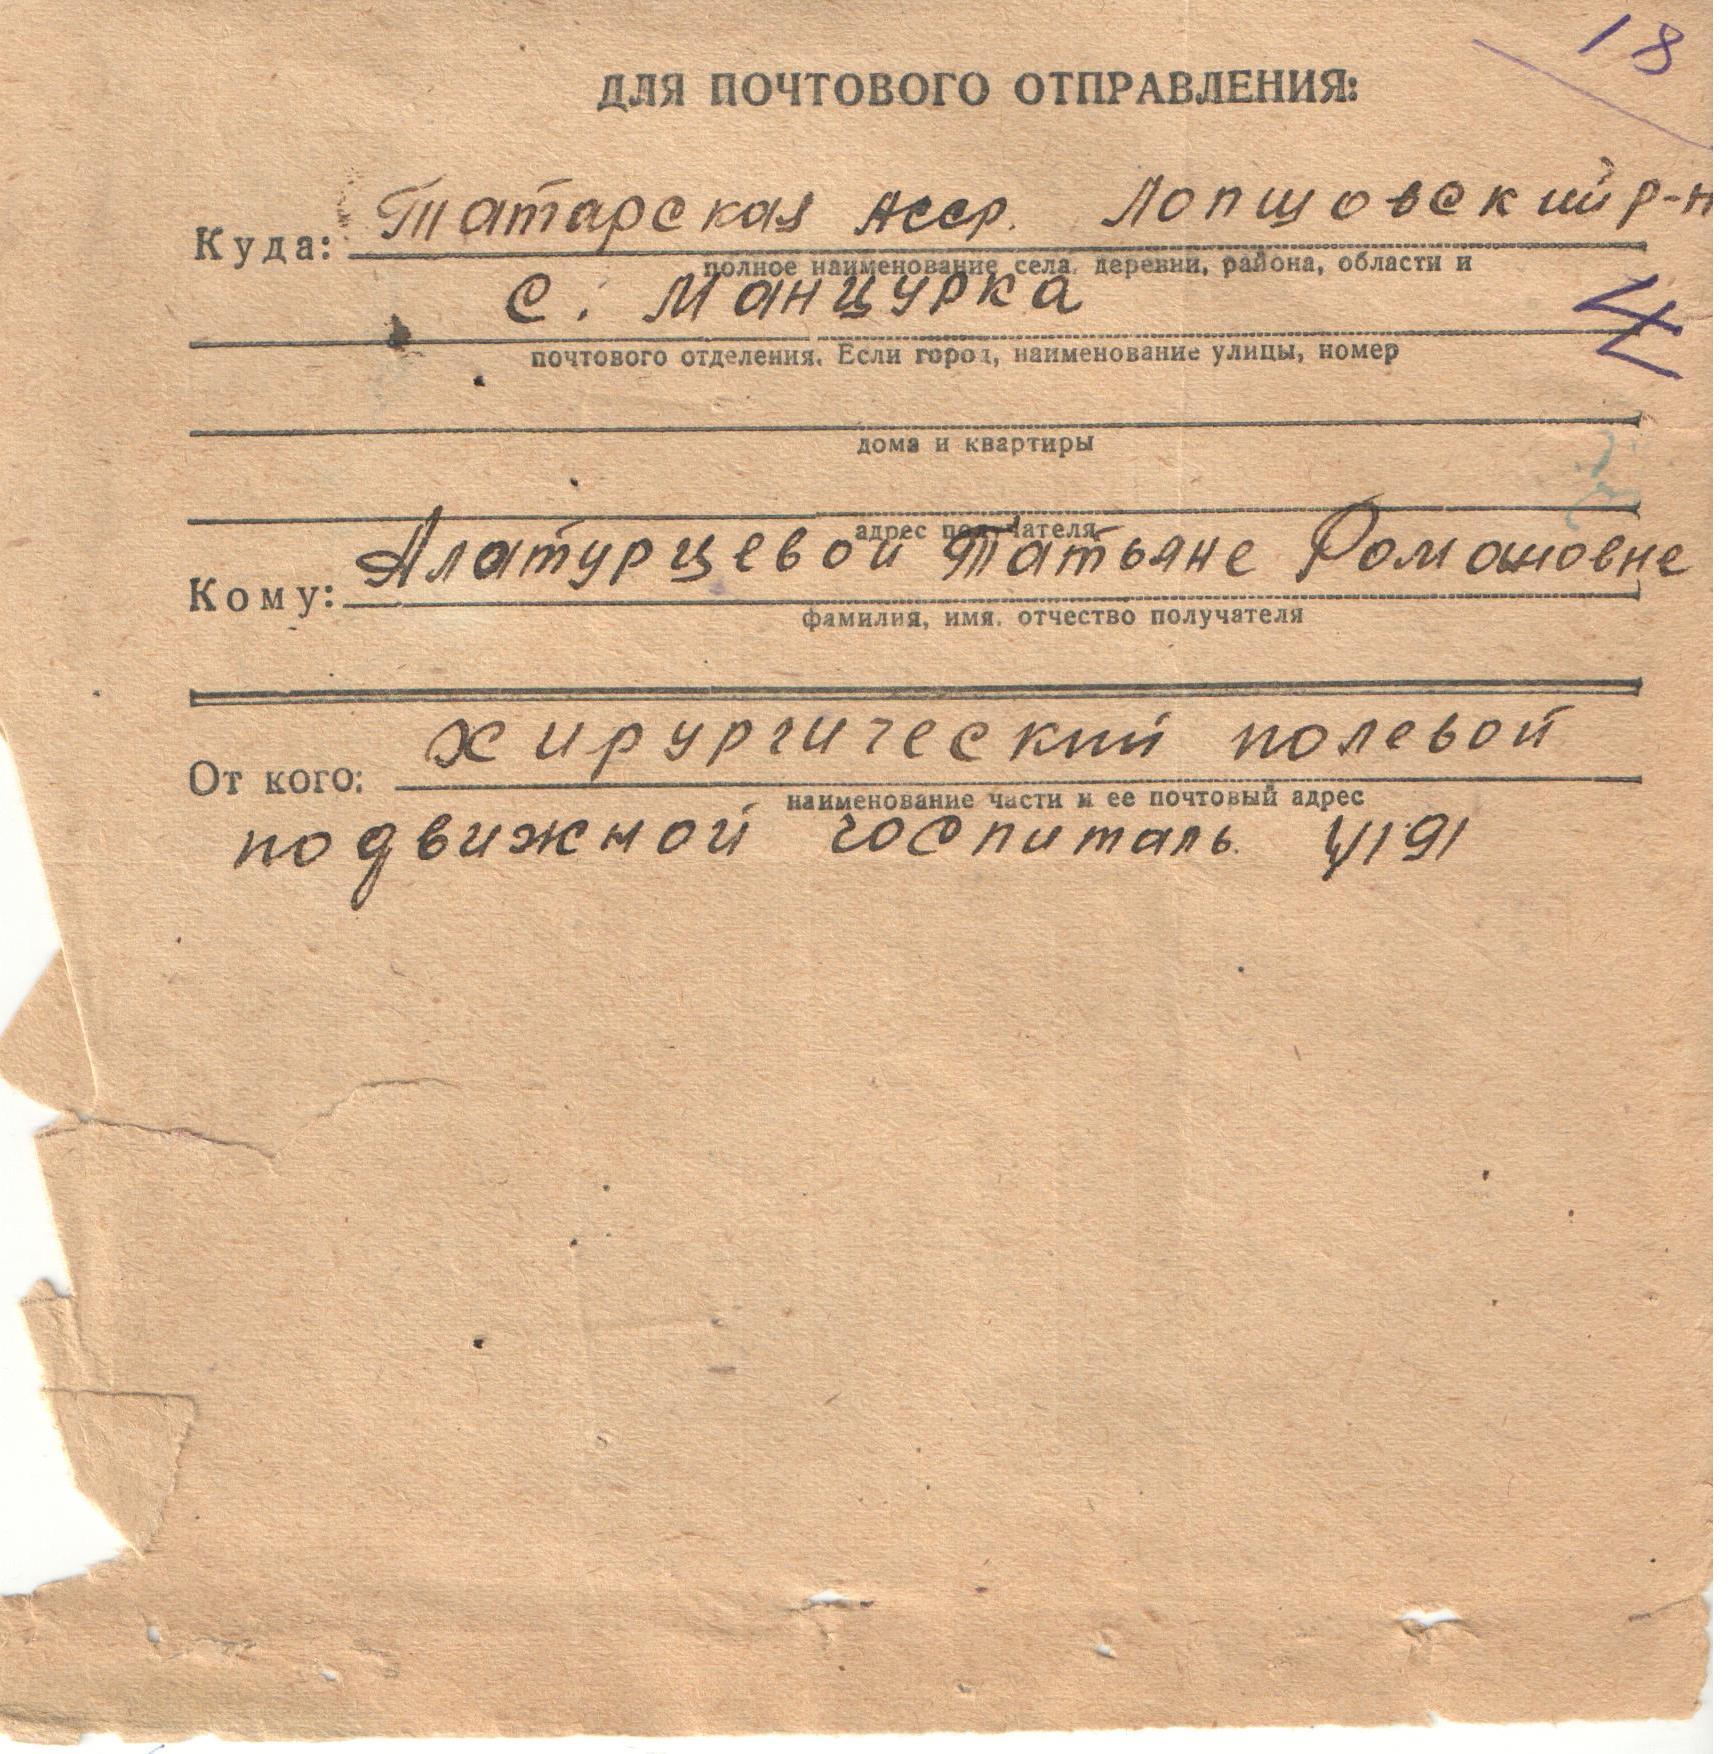 18
ДЛЯ ПОЧТОВОГО ОТПРАВЛЕНИЯ:
Куда: Татарская Асср. Лопшовский р-н
полное наименование села, деревни, района, области и
с. Манцурка
4
почтового отделения. Если город, наименование улицы, номер
дома и квартиры
адрес получателя
Кому: Алатурцевой Татьяне Романовне
фамилия, имя, отчество получателя
От кого: хирургический полевой
наименование части и ее почтовый адрес
подвижной госпиталь 4191